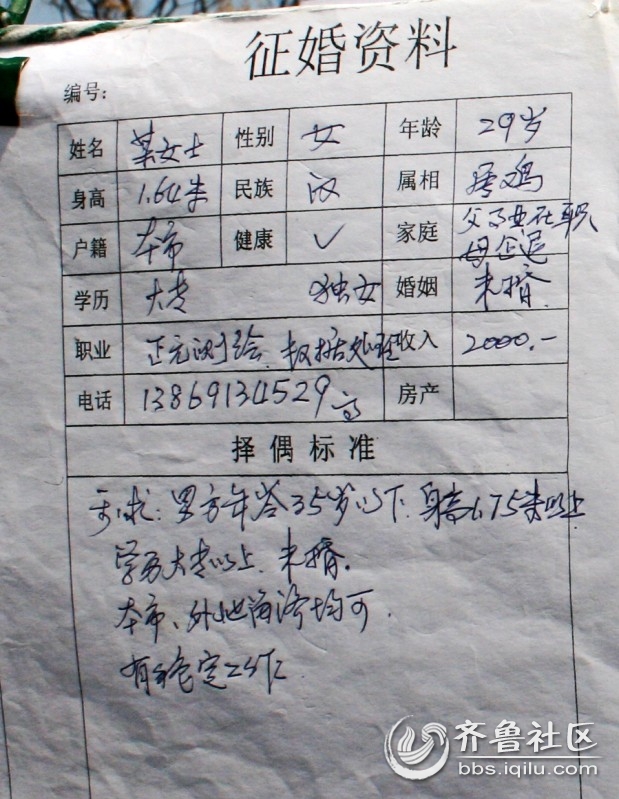 征婚资料
编号:
姓名 某女士 性别 女 年龄 29岁
身高 1.64米 民族 汉 属相 属鸡
户籍 本市 健康 ✓ 家庭 父 在职
母企退
学历 大专 独女 婚姻 未婚
职业 正元测绘.数据处理 收入 2000.-
电话 13869134529 高 房产
择偶标准
要求:男方年令35岁以下.身高1.75米以上
学历大专以上.未婚.
本市、外地 均可.
有稳定工作.
齐鲁社区
bbs.iqilu.com